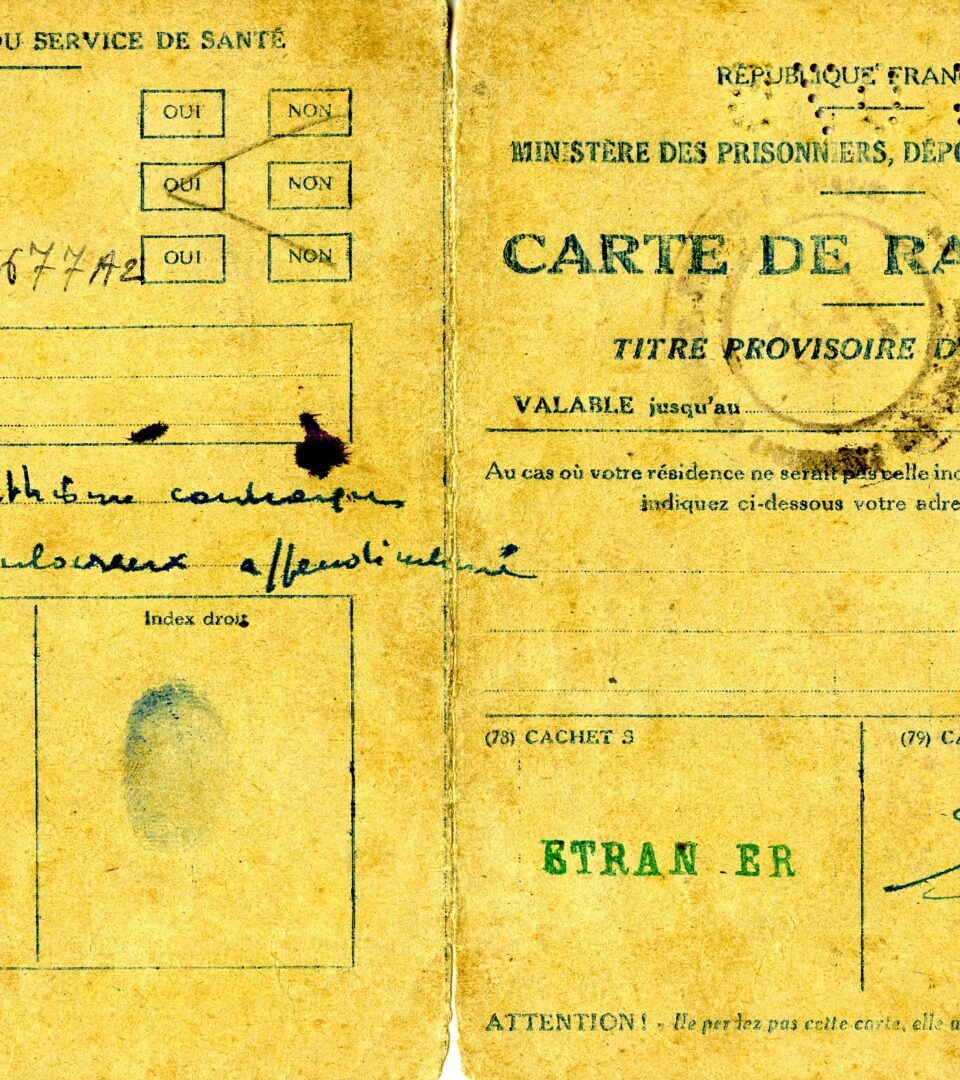 DU SERVICE DE SANTÉ
OUI NON
OUI NON
677A2 OUI NON
Index droit
RÉPUBLIQUE FRAN
MINISTÈRE DES PRISONNIERS, DÉPO
CARTE DE RA
TITRE PROVISOIRE D'
VALABLE jusqu'au
Au cas où votre résidence ne serait pas celle ind
indiquez ci-dessous votre adre
(78) CACHET S
(79) CA
ETRAN ER
ATTENTION! - Ne perdez pas cette carte, elle